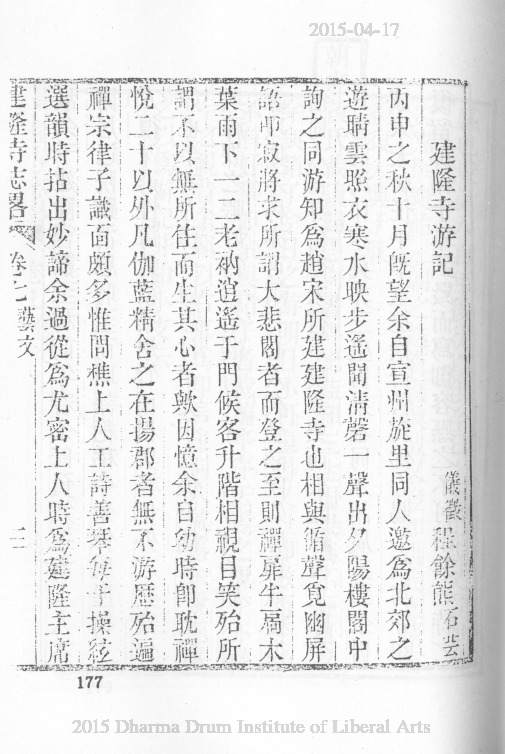 2015-04-17
建隆寺游記
儀徵 程餘熊石芸
丙申之秋十月既望余自宣州旋里同人邀為北郊之
遊晴雲照衣寒水映步遙聞清磬一聲出夕陽樓閣中
詢之同游知為趙宋所建建隆寺也相與循聲覓幽屏
語叩寂將求所謂大悲閣者而登之至則禪扉半扃木
葉雨下一二老衲逍遙于門候客升階相視目笑殆所
謂不以無所住而生其心者歟因憶余自幼時即耽禪
悅二十以外凡伽藍精舍之在揚郡者無不游歷殆遍
禪宗律子識面頗多惟問樵上人工詩善琴每于操縵
選韻時拈出妙諦余過從為尤密上人時為建隆主席
建隆寺志畧 卷七 藝文 二
177
2015 Dharma Drum Institute of Liberal Arts